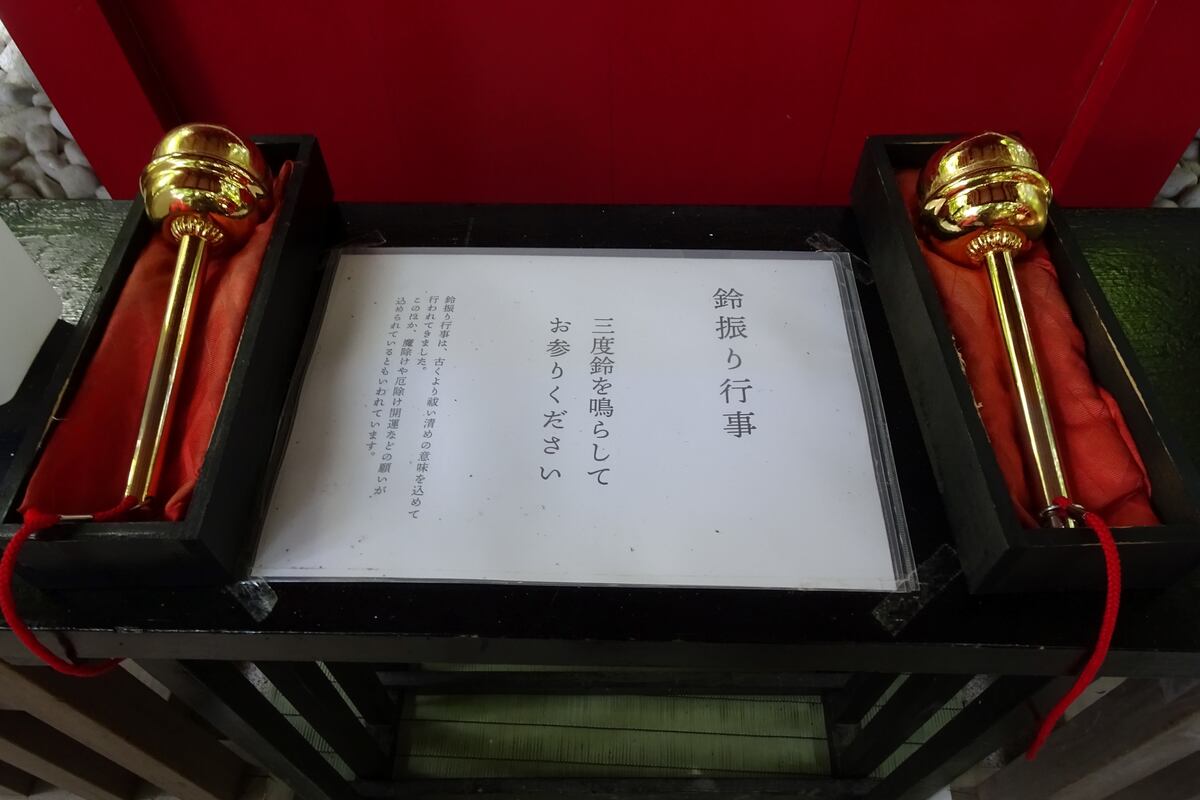 鈴振り行事
三度鈴を鳴らして
お参りください
鈴振り行事は、古くより祓い清めの意味を込めて
行われてきました。
このほか、魔除けや厄除け開運などの願いが
込められているともいわれています。